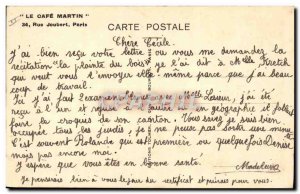 "LE CAFÉ MARTIN"
36, Rue Joubert, Paris
CARTE POSTALE
Chère Cécile.
J'ai bien reçu votre lettre ou vous me demandez la
récitation "la plainte du bois" je l'ai dit à Melle Kretch
qui veut vous l'envoyer elle même parce que j'ai beau-
coup de travail.
Ici j'ai fait 2 examens Melle Laurier, j'ai été
reçue à l'un et refusé à l'autre en géographie il fallait
faire les croquis de son canton. Vous savez je suis bien
occupée tous les jeudis, je ne peux pas sortir une minute
C'est souvent Rolande qui est première ou quelquefois Denise
mais pas encore moi.
J'espère que vous êtes en bonne santé.
Madeleine
Je penserais bien à vous le jour du certificat et prierez pour vous.